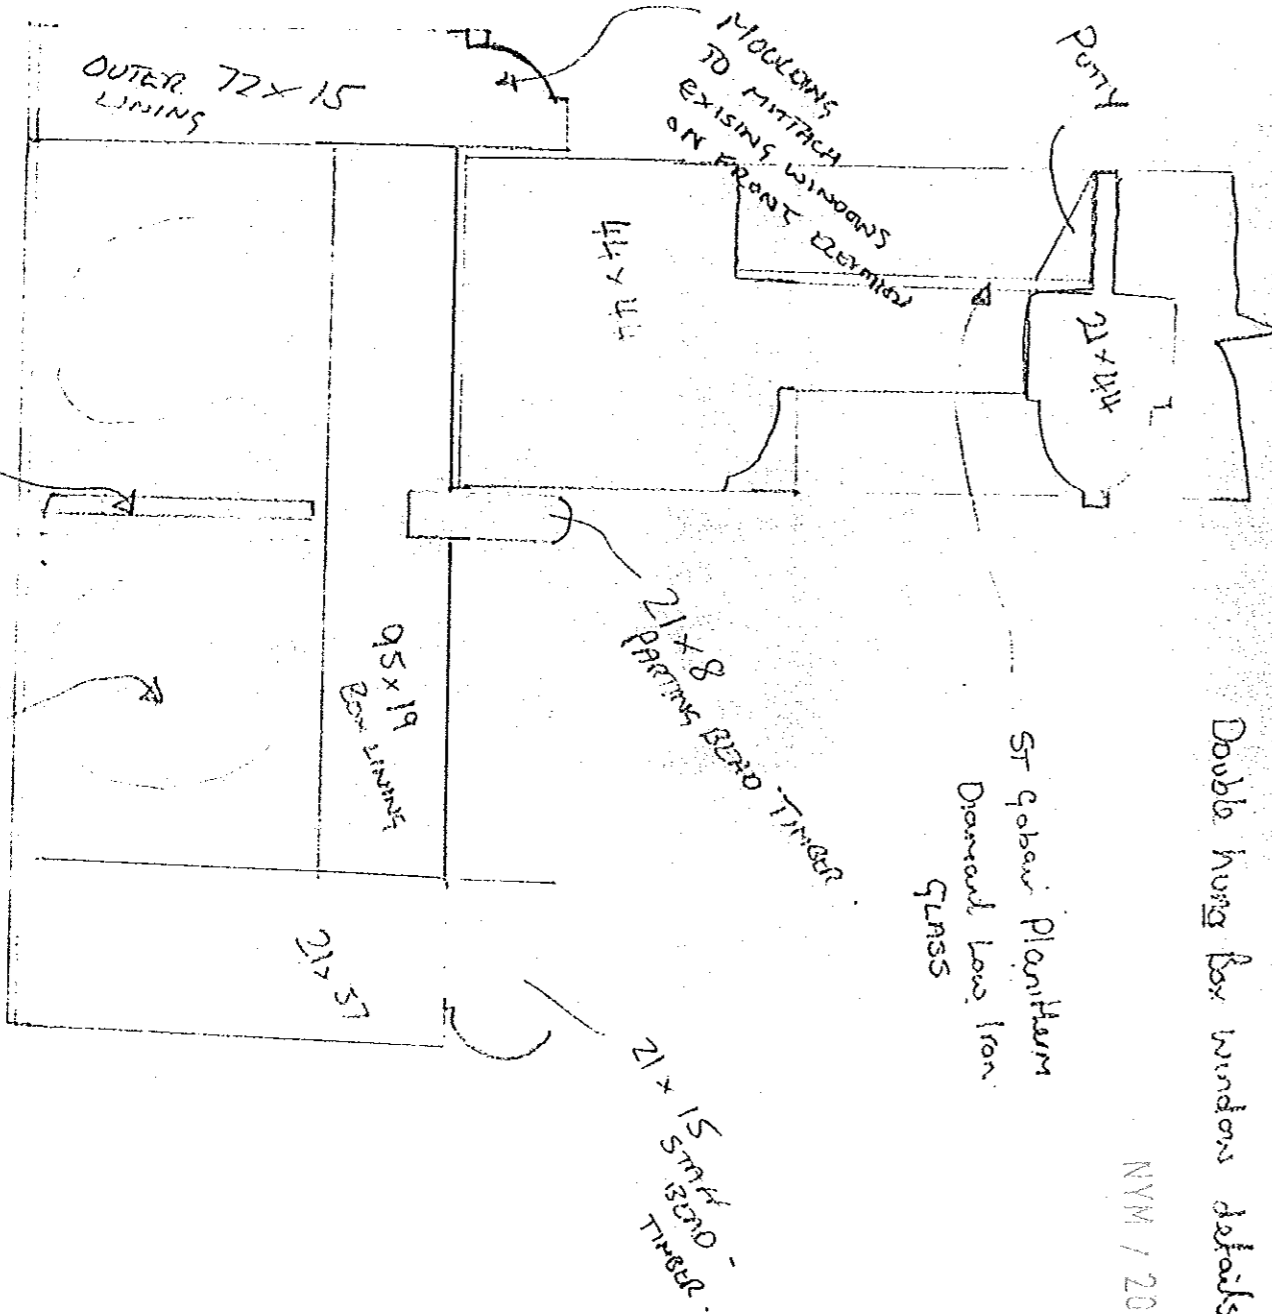 Double hung Box window details
NYM / 20
PUTTY
MOULDING
TO MATTACH
EXISING WINDOWS
ON FRONT ELEVATION
OUTER 72 x 15
LINING
44 x 44
21 x 44
ST Gobain Planitherm
Diamant Low Iron
GLASS
21 x 8
PARTING BEAD TIMBER.
95 x 19
BOX LINING
21 x 37
21 x 15
STAFF
BEAD -
TIMBER.